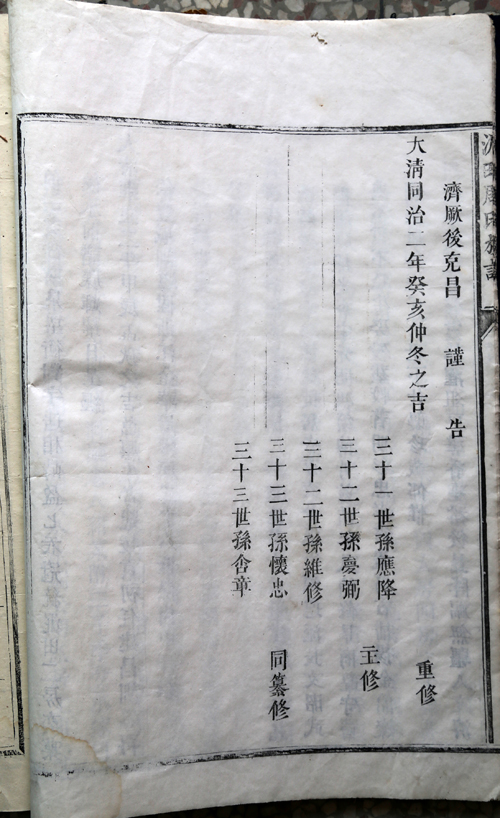 濟厥後克昌　謹　告
大清同治二年癸亥仲冬之吉　重修
三十一世孫應降
三十二世孫慶弼　主修
三十二世孫維修
三十三世孫懷忠　同纂修
三十三世孫含章